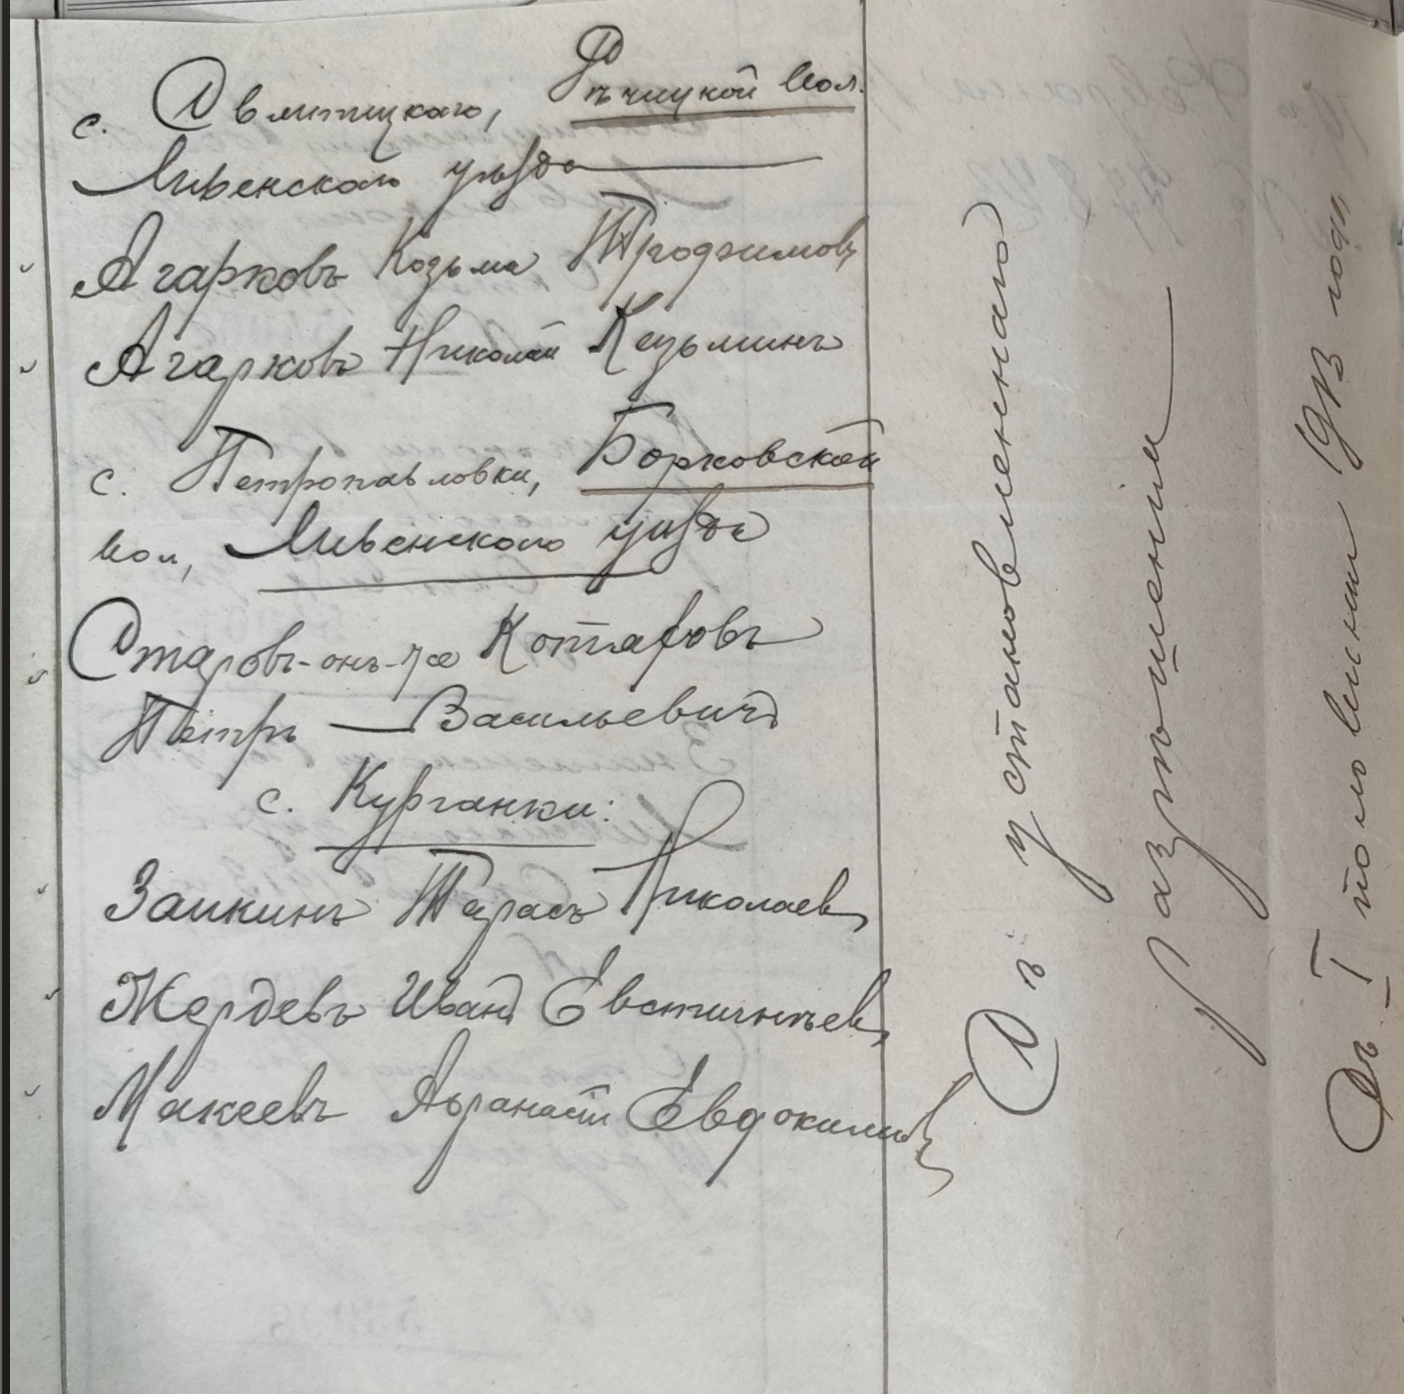 с. Святицкаго, Рѣчицкой Вол.
Ливенскаго уѣзда
Агарковъ Козьма Трофимовъ
Агарковъ Николай Кузьминъ
с. Петропавловки, Борковской
Вол, Ливенскаго уѣзда
Старовъ-онъ-же Котляровъ
Петръ Васильевичъ
с. Курганки:
Заикинъ Тарасъ Николаев,
Жердевъ Иванъ Евстигнѣев,
Макеевъ Афанасiй Евдокимовъ
Съ установленнаго
разрѣшенiя
Въ I половинѣ 1913 года